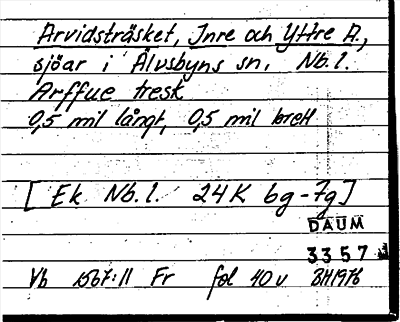 Arvidsträsket, Inre och Yttre A.,
sjöar i Älvsbyns sn. Nb.l.
Arffue tresk
0,5 mil långt, 0,5 mil brett
[ Ek. Nb.l. 24K 6g-7g]
DAUM
3357
Vb 1567:11 Fr fol 40v BH1976